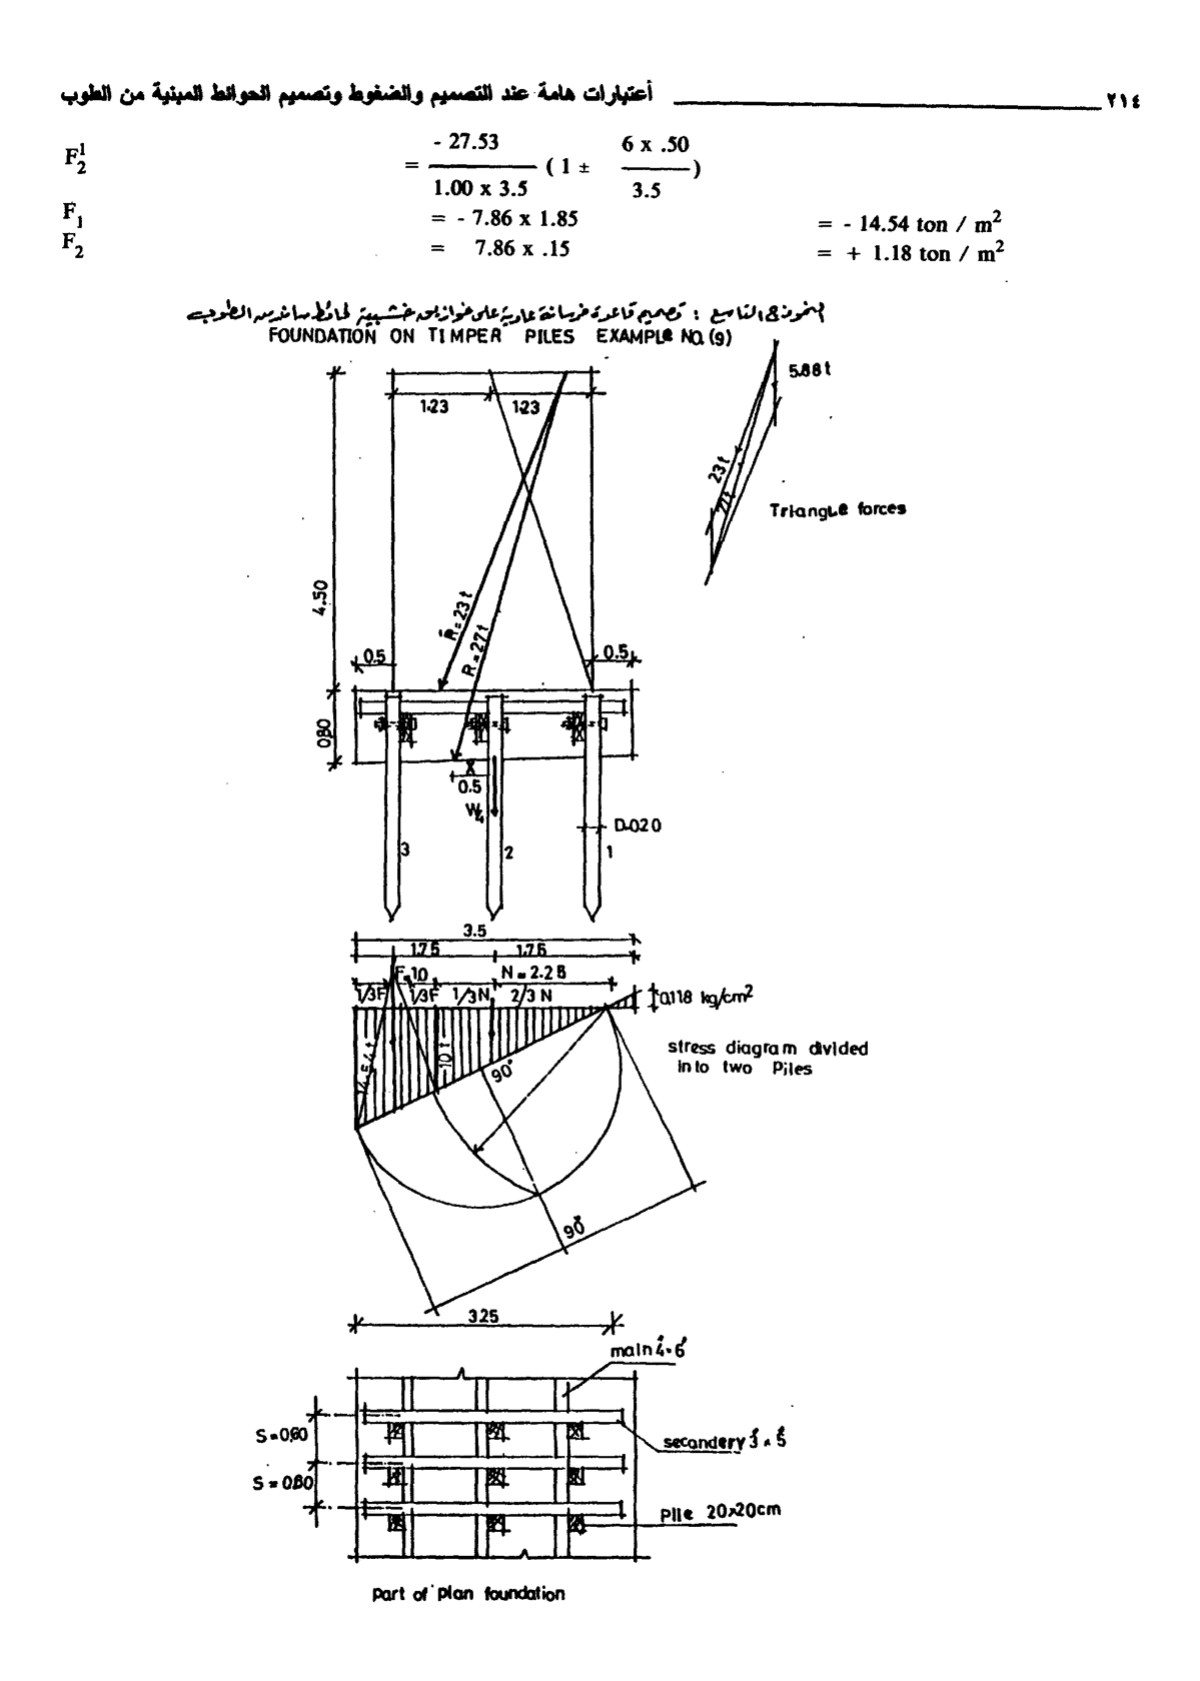 أعتبارات هامة عند التصميم والضغوط وتصميم الحوائط المبنية من الطوب ٢١٤
F¹₂ = - 27.53 / 1.00 x 3.5 ( 1 ± 6 x .50 / 3.5 )
F₁ = - 7.86 x 1.85 = - 14.54 ton / m²
F₂ = 7.86 x .15 = + 1.18 ton / m²
النموذج التاسع : تصميم قاعدة خرسانة عادية على خوازيق خشبية لحائط ساند من الطوب
FOUNDATION ON TIMPER PILES EXAMPLE NO. (9)
5.88 t
1.23 1.23
23 t
27 t
Triangle forces
4.50
R̄ = 23 t
R = 27 t
0.5 0.5
0.80
X
0.5
W₄
D=0.20
3 2 1
3.5
1.75 1.75
F=1.0 N = 2.25
1/3F 1/3F 1/3N 2/3 N
0.118 kg/cm²
14=4 t
10 t
stress diagram divided
into two Piles
90°
90°
3.25
main 4×6
S=0.80
secondery 3 × 5
S = 0.80
Pile 20×20cm
Part of plan foundation